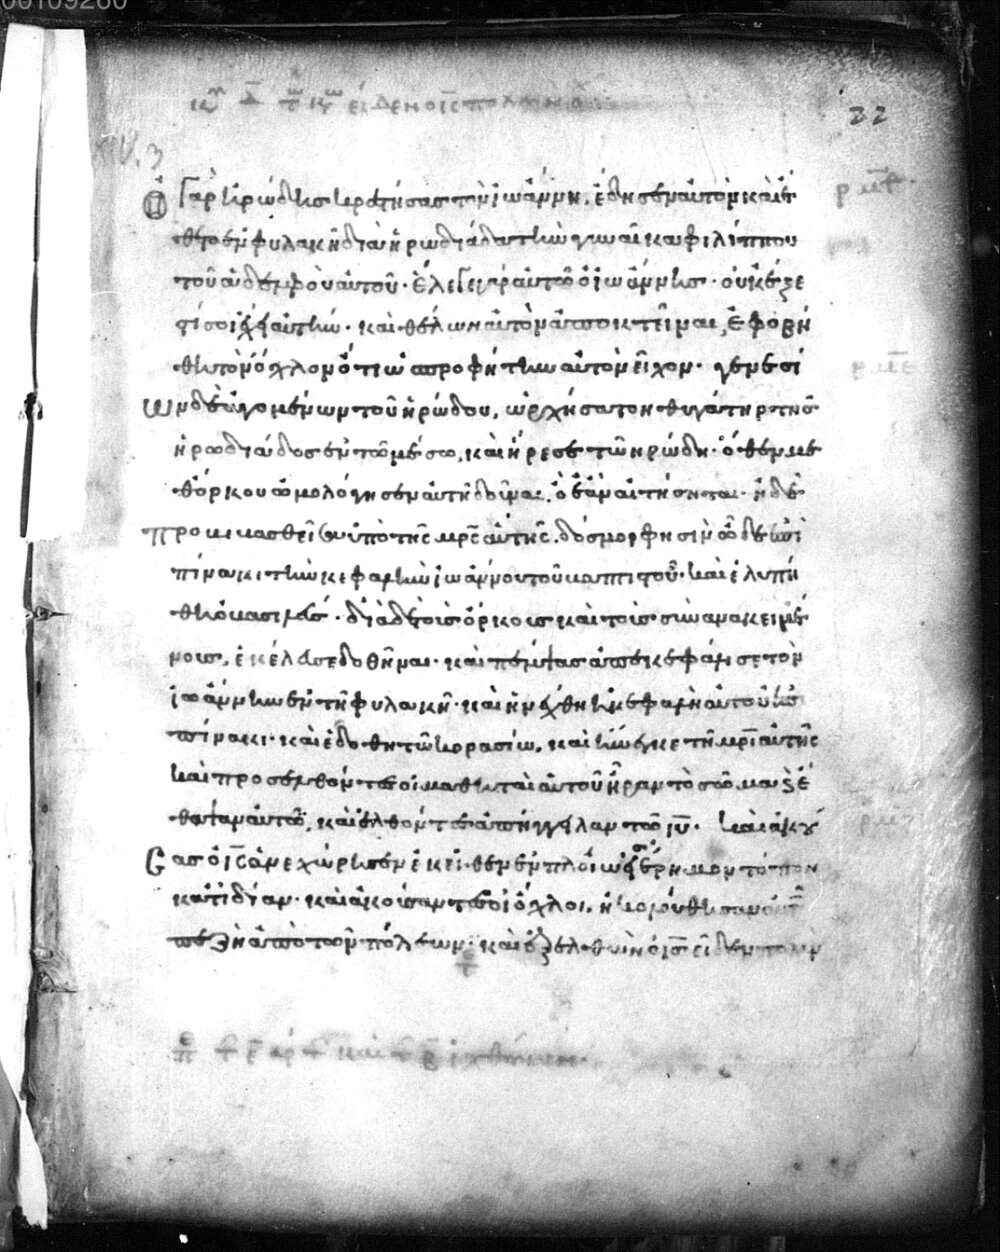 00109260
22
XIV. 3
Ὁ γὰρ ἡρώδησ κρατήσασ τὸν ἰωάννην, ἔδησεν αὐτὸν καὶ ἔ
θετο ἐν φυλακῆ διὰ ἡρωδιάδα τὴν γυναῖκα φιλίππου
τοῦ ἀδελφοῦ αὐτοῦ· ἔλεγεν γὰρ αὐτῶ ὁ ἰωάννησ· οὐκ ἔξε
στί σοι ἔχειν αὐτήν· καὶ θέλων αὐτὸν ἀποκτεῖναι, ἐφοβή
θη τὸν ὄχλον ὅτι ὡσ προφήτην αὐτὸν εἶχον· γενεσί
ων δὲ ἀγομένων τοῦ ἡρώδου, ὠρχήσατο ἡ θυγάτηρ τῆσ
ἡρωδιάδοσ ἐν τῶ μέσω, καὶ ἤρεσε τῶ ἡρώδη· ὅθεν με
θ ὅρκου ὡμολόγησεν αὐτῆ δοῦναι, ὃ ἐὰν αἰτήσηται· ἡ δὲ
προβιβασθεῖσα ὑπὸ τῆς μρς αὐτῆς. δόσ μοι φησὶν ὧδε ἐπὶ
πίνακι τὴν κεφαλὴν ἰωάννου τοῦ βαπτιστοῦ· καὶ ἐλυπή
θη ὁ βασιλεύσ· διὰ δὲ τοὺσ ὅρκουσ καὶ τοὺσ συνανακειμέ
νουσ, ἐκέλευσε δοθῆναι· καὶ πέμψασ ἀπεκεφάλισε τὸν
ἰωάννην ἐν τῆ φυλακῆ· καὶ ἠνέχθη ἡ κεφαλὴ αὐτοῦ ἐπὶ
πίνακι· καὶ ἐδόθη τῶ κορασίω, καὶ ἤνεγκε τῆ μρι αὐτῆς
καὶ προσελθόντεσ οἱ μαθηταὶ αὐτοῦ ἦραν τὸ σῶμα καὶ ἔ
θαψαν αὐτὸ, καὶ ἐλθόντεσ ἀπήγγειλαν τῶ ιυ· καὶ ἀκού
σασ ὁ ισ ἀνεχώρησεν ἐκεῖθεν ἐν πλοίω εἰσ ἔρημον τόπον
κατιδίαν· καὶ ἀκούσαντεσ οἱ ὄχλοι, ἠκολούθησαν αὐτ
πεζῆ ἀπὸ τῶν πόλεων· καὶ ἐξελθὼν ὁ ισ εἶδεν πολὺν